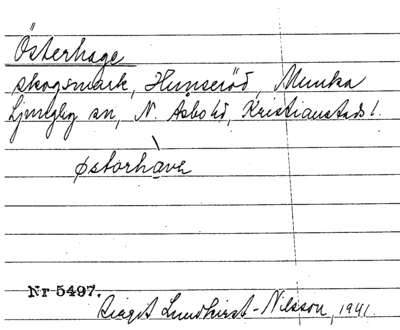 Österhage
skogsmark, Hunseröd, Munka
Ljungby sn, N. Åsbo hd, Kristianstads l.
østərhàvə
Nr 5497.
Birgit Lundkvist-Nilsson, 1941.